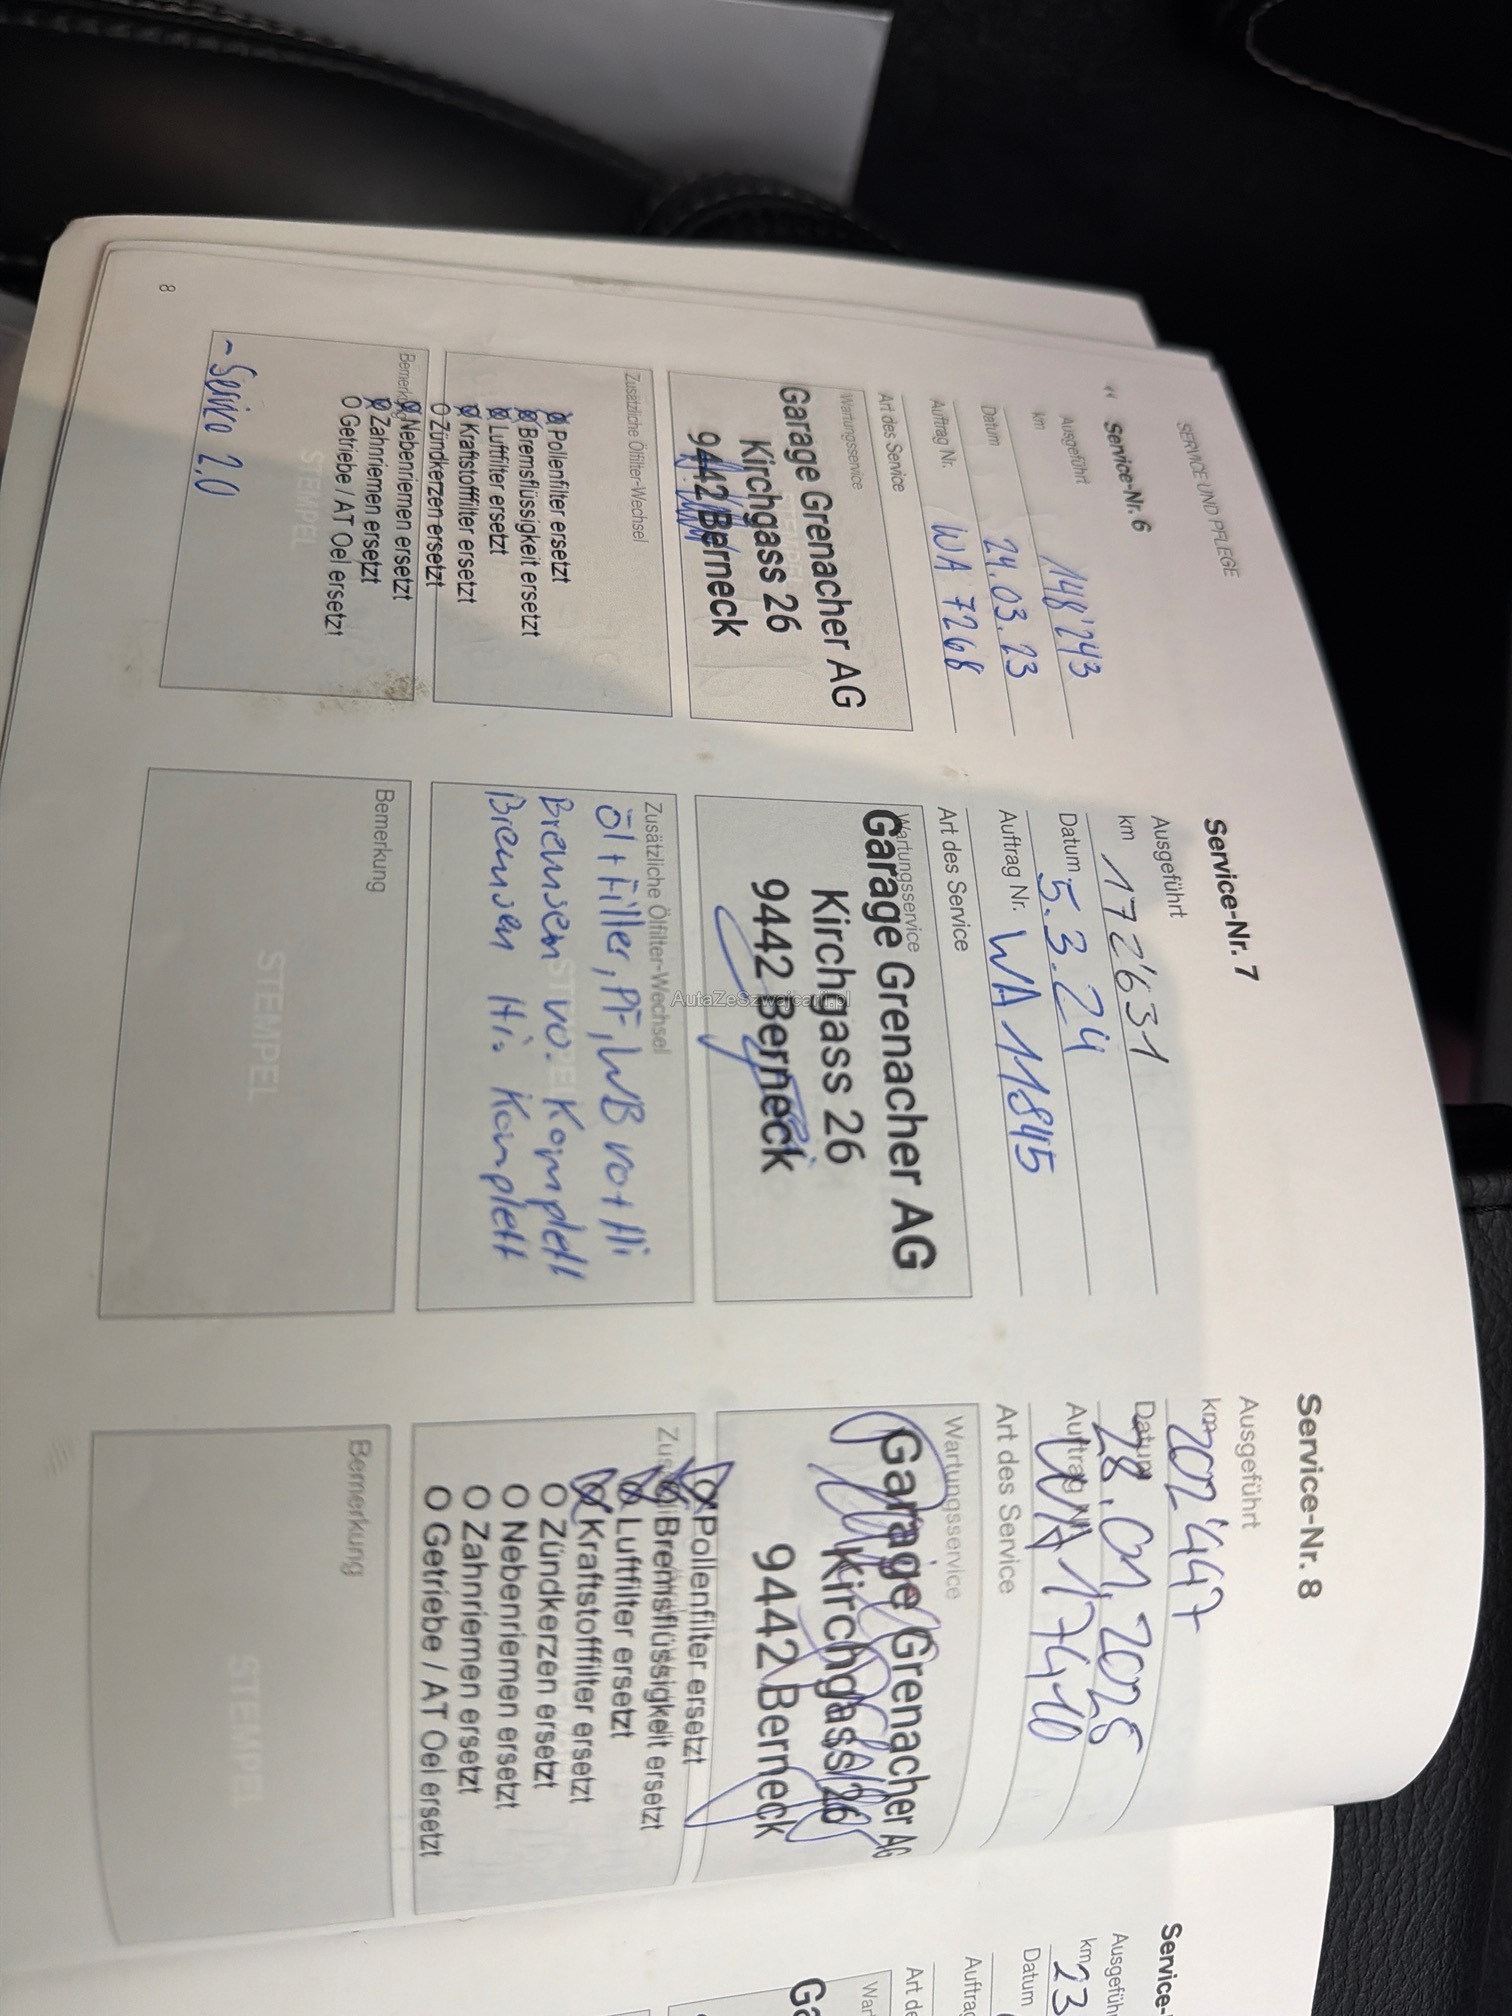 SERVICE UND PFLEGE
« Service-Nr. 6
Ausgeführt
km 148'243
Datum 24.03.23
Auftrag Nr. WA 7268
Art des Service
Wartungsservice
Garage Grenacher AG
Kirchgass 26
9442 Berneck
Zusätzliche Ölfilter-Wechsel
Pollenfilter ersetzt
Bremsflüssigkeit ersetzt
Luftfilter ersetzt
Kraftstofffilter ersetzt
O Zündkerzen ersetzt
Bemerkung
Nebenriemen ersetzt
Zahnriemen ersetzt
O Getriebe / AT Oel ersetzt
STEMPEL
- Service 2.0
8
Service-Nr. 7
Ausgeführt
km 172'631
Datum 5.3.24
Auftrag Nr. WA 11845
Art des Service
Wartungsservice
Garage Grenacher AG
Kirchgass 26
9442 Berneck
Zusätzliche Ölfilter-Wechsel
Öl + Filter, PF, WB vo + Hi
Bremsen vo. Komplett
Bremsen Hi. Komplett
Bemerkung
STEMPEL
AutaZeSzwajcarii.pl
Service-Nr. 8
Ausgeführt
km 202'447
Datum 28.01.2025
Auftrag Nr. WA 17410
Art des Service
Wartungsservice
Garage Grenacher AG
Kirchgass 26
9442 Berneck
Pollenfilter ersetzt
Bremsflüssigkeit ersetzt
Luftfilter ersetzt
Kraftstofffilter ersetzt
O Zündkerzen ersetzt
O Nebenriemen ersetzt
O Zahnriemen ersetzt
O Getriebe / AT Oel ersetzt
Bemerkung
STEMPEL
Service-
Ausgefüh
km 23
Datum
Auftrag
Art de
War
Ga